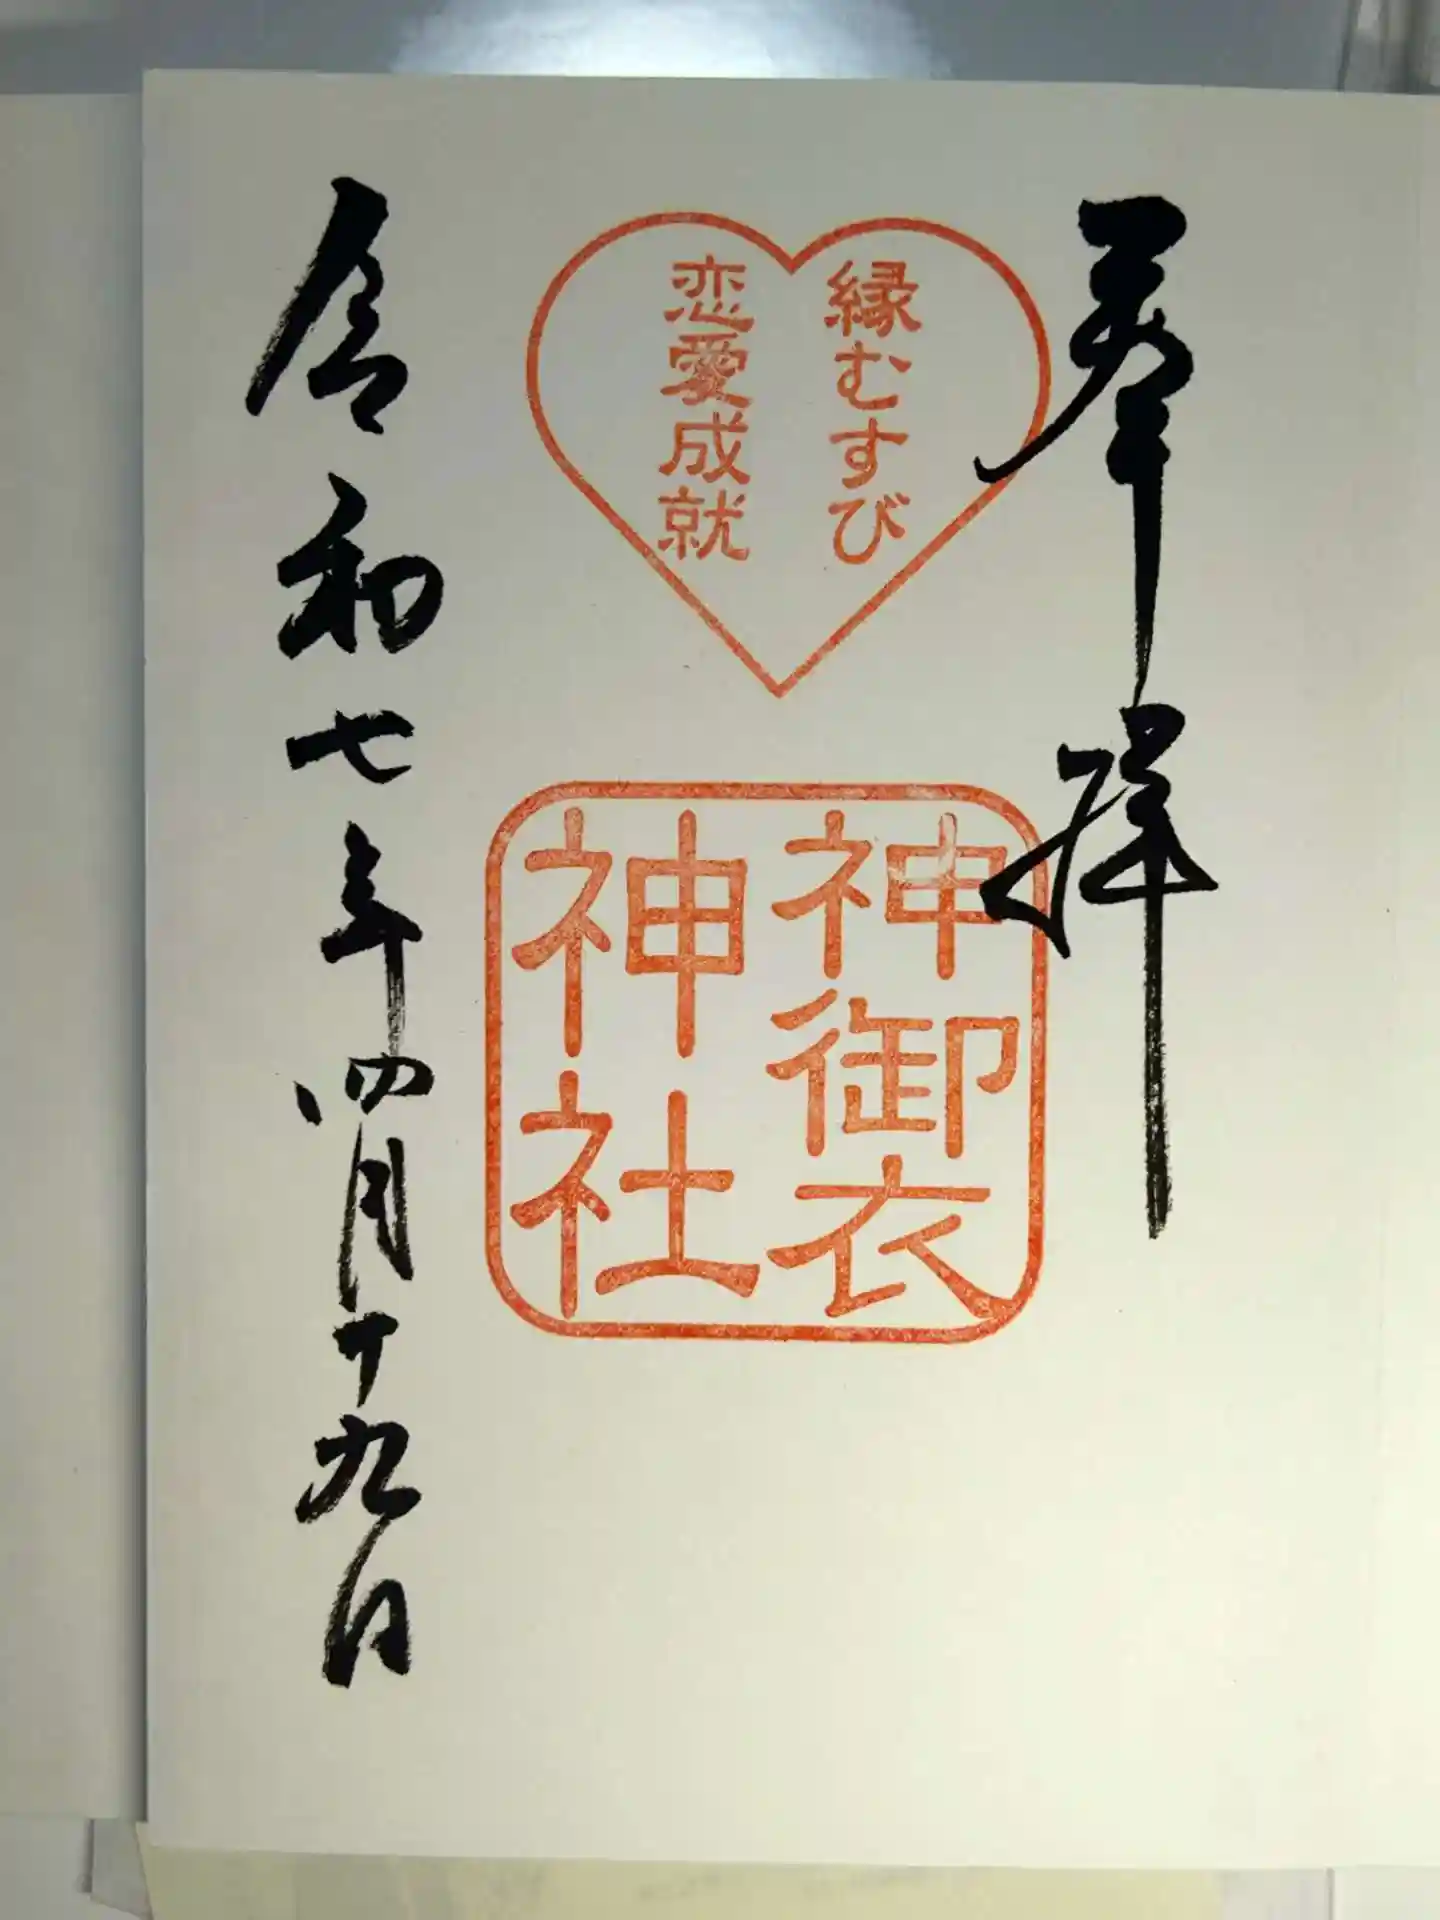 奉拝
縁むすび
恋愛成就
神御衣
神社
令和七年四月十九日